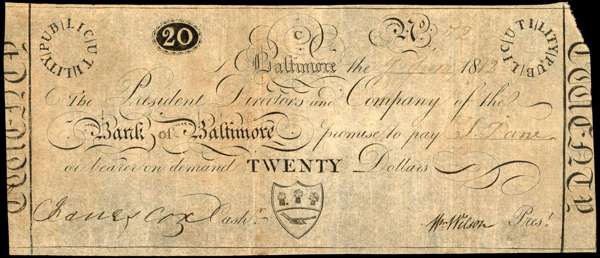 PUBLIC UTILITY
20
C
No
PUBLIC UTILITY
Baltimore the 1812
The President Directors and Company of the
Bank of Baltimore promise to pay
or bearer on demand TWENTY Dollars
James Cox Cash.r
Wm Wilson Pres.t
TWENTY
TWENTY